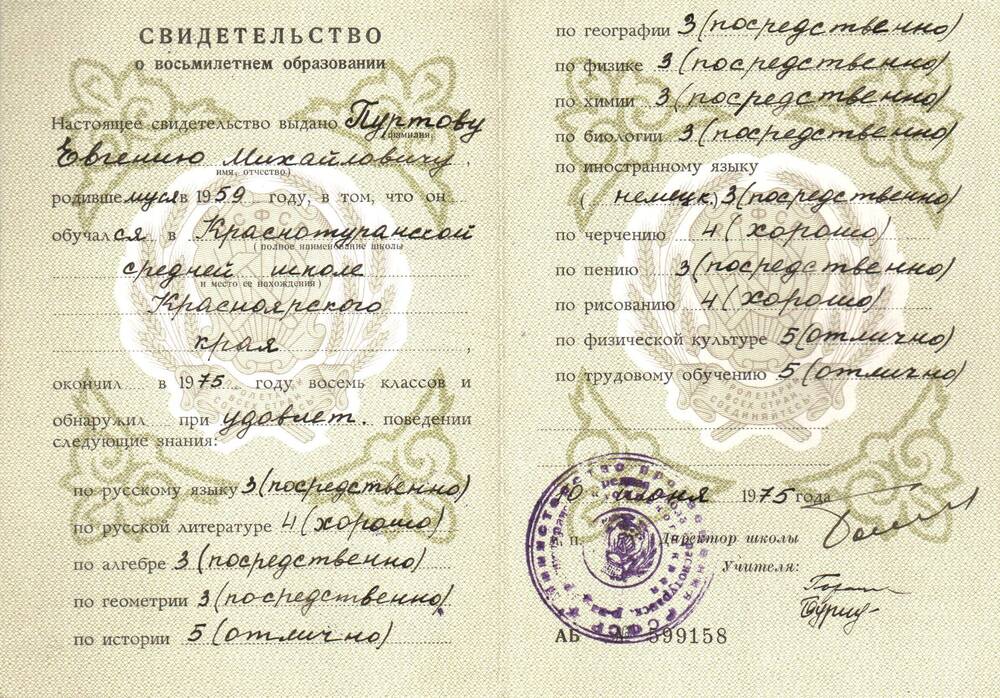 СВИДЕТЕЛЬСТВО
о восьмилетнем образовании
Настоящее свидетельство выдано Пуртову
(фамилия,
Евгению Михайловичу,
имя, отчество)
родившемуся в 1959 году, в том, что он
обучался в Краснотуранской
(полное наименование школы
средней школе
и место ее нахождения)
Красноярского
края,
окончил в 1975 году восемь классов и
обнаружил при удовлет. поведении
следующие знания:
по русскому языку 3 (посредственно)
по русской литературе 4 (хорошо)
по алгебре 3 (посредственно)
по геометрии 3 (посредственно)
по истории 5 (отлично)
по географии 3 (посредственно)
по физике 3 (посредственно)
по химии 3 (посредственно)
по биологии 3 (посредственно)
по иностранному языку
(немецк.) 3 (посредственно)
по черчению 4 (хорошо)
по пению 3 (посредственно)
по рисованию 4 (хорошо)
по физической культуре 5 (отлично)
по трудовому обучению 5 (отлично)
июня 1975 года
Директор школы
Учителя:
АБ № 599158